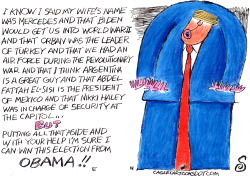 I KNOW I SAID MY WIFE'S NAME
WAS MERCEDES AND THAT BIDEN
WOULD GET US INTO WORLD WAR II
AND THAT ORBAN WAS THE LEADER
OF TURKEY AND THAT WE HAD AN
AIR FORCE DURING THE REVOLUTIONARY
WAR AND THAT I THINK ARGENTINA
IS A GREAT GUY AND THAT ABDEL
FATTAH EL-SISI IS THE PRESIDENT
OF MEXICO AND THAT NIKKI HALEY
WAS IN CHARGE OF SECURITY AT
THE CAPITOL...
BUT
PUTTING ALL THAT ASIDE AND
WITH YOUR HELP I'M SURE I
CAN WIN THIS ELECTION FROM
OBAMA!!
CAGLECARTOONS.COM